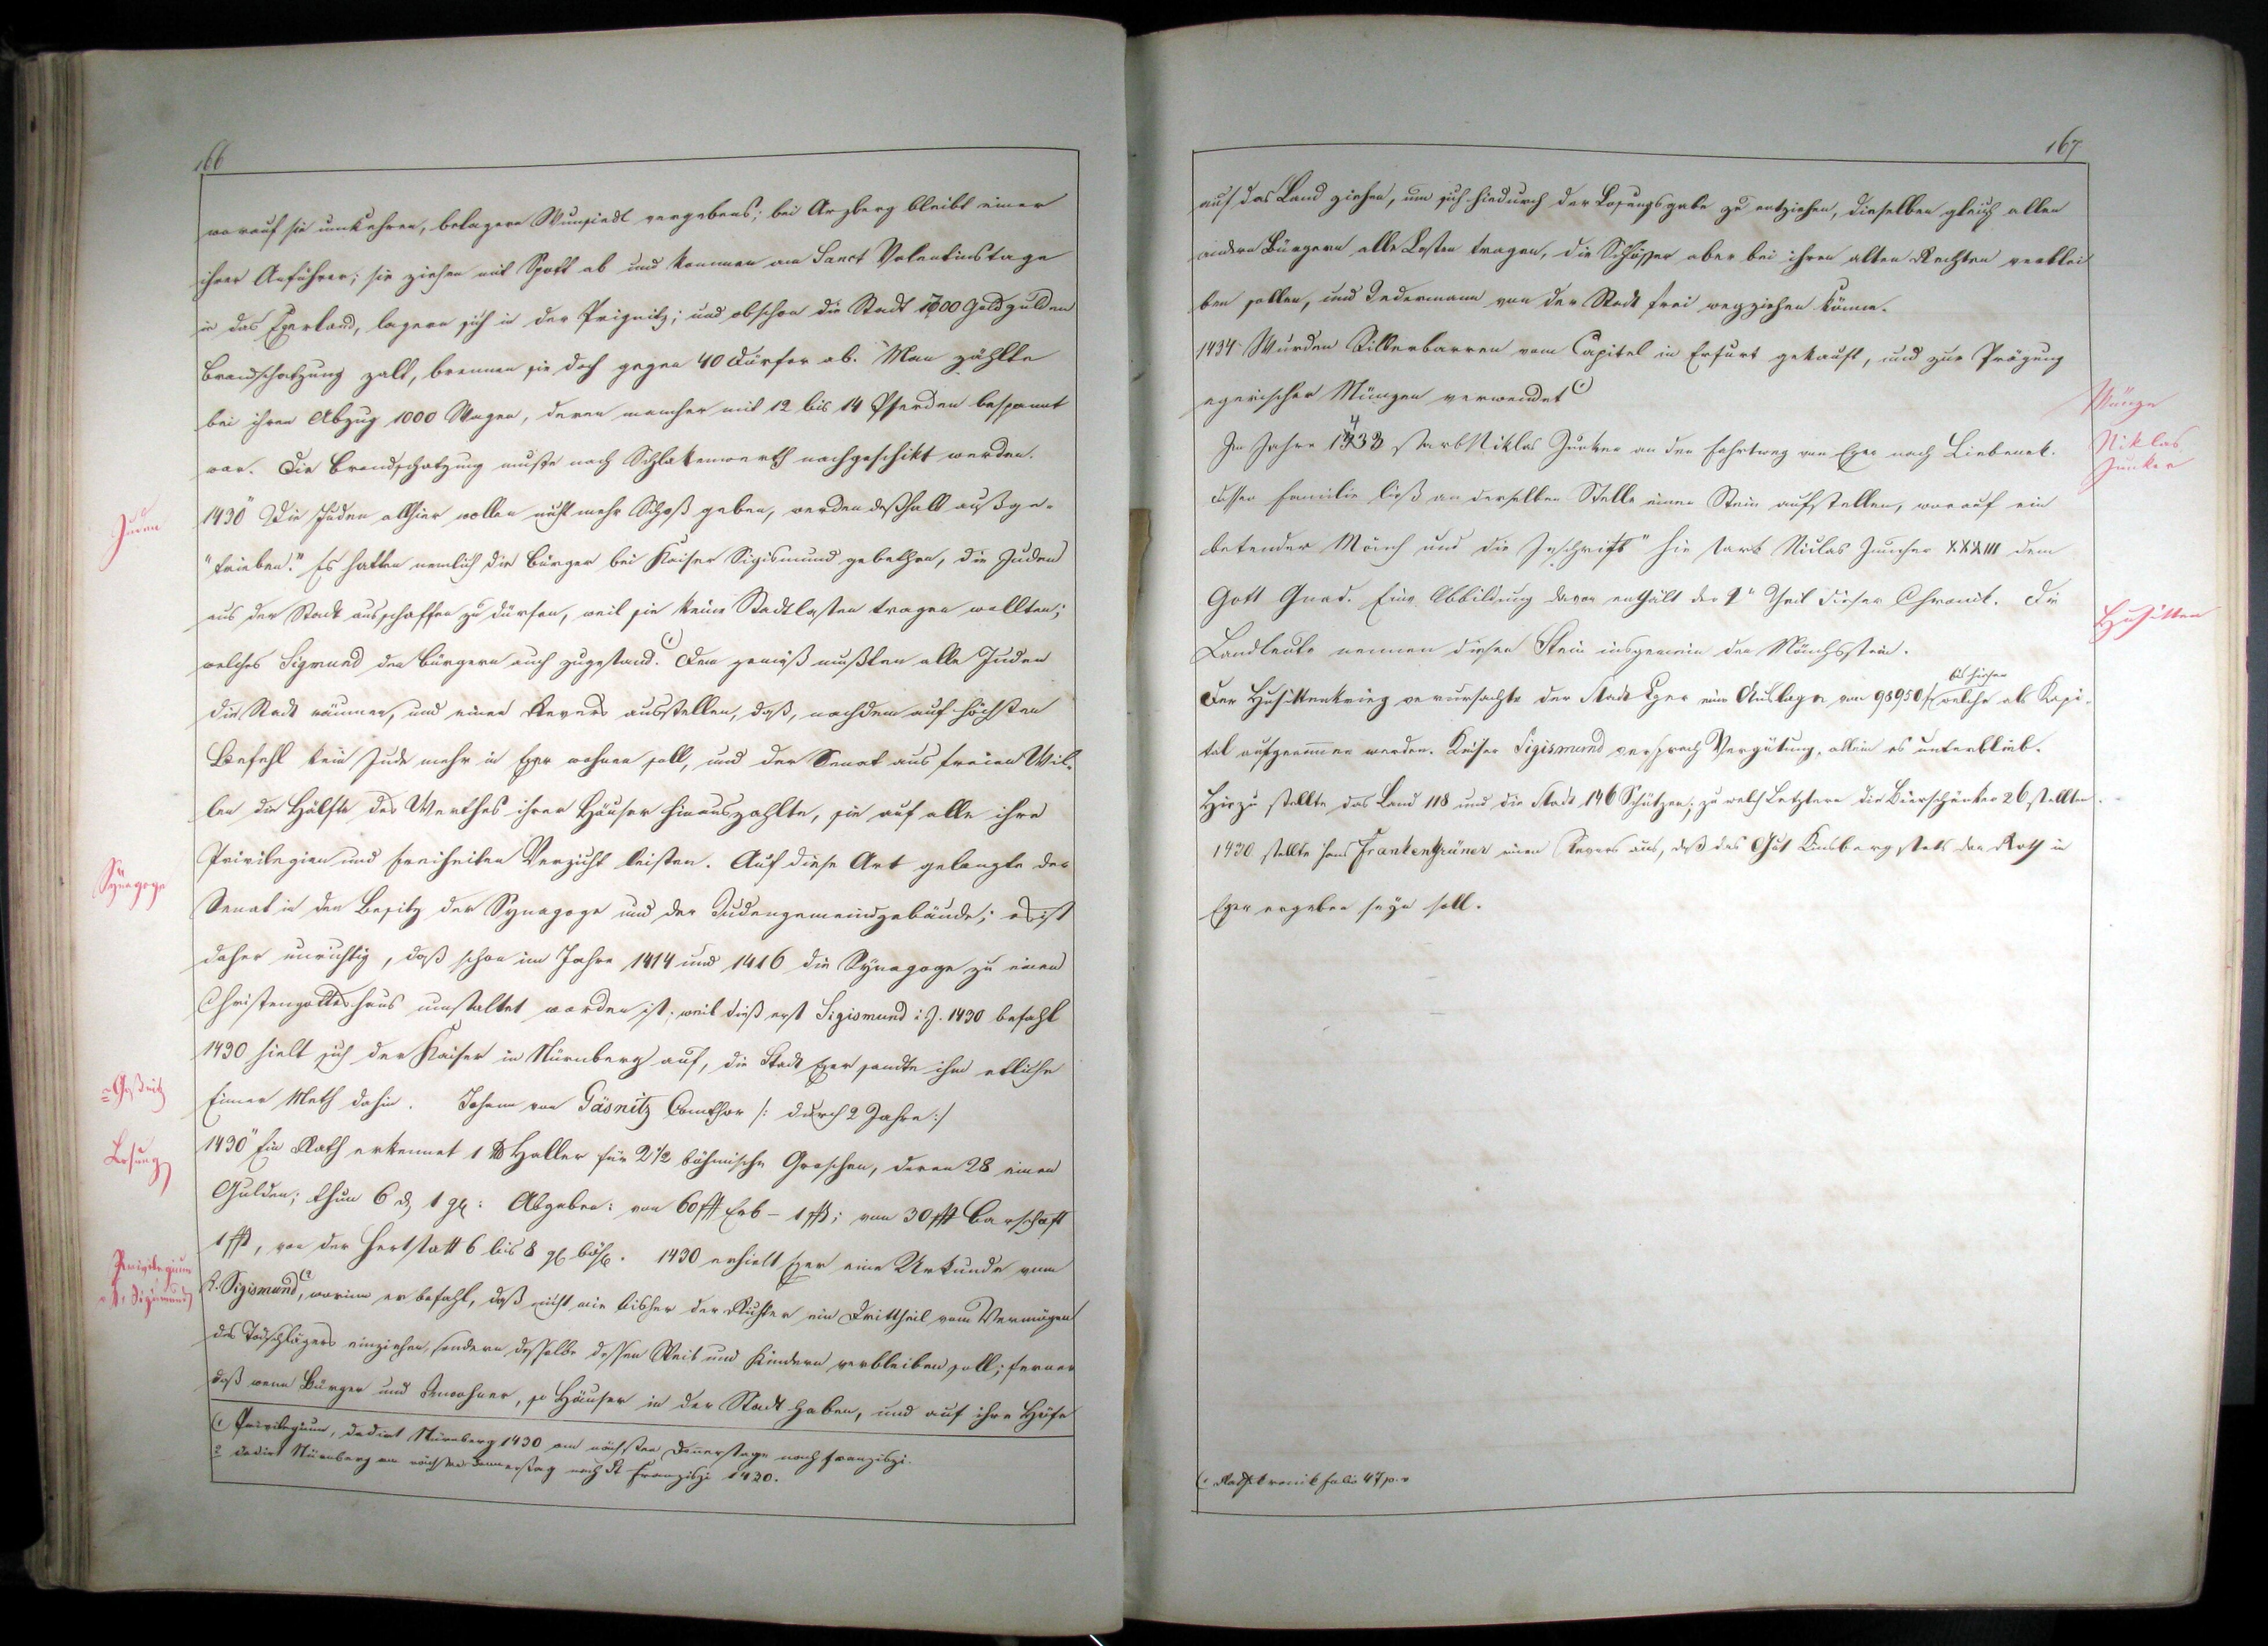 166
worauf sie umkehren, belagern Wunsiedl vergebens; bei Arzberg bleibt einer
ihrer Anführer; sie ziehen mit Spott ab und kommen am Sanct Valentinstage
in das Egerland, lagern sich in der Prignitz; und obschon die Stadt 1700 Goldgulden
Brandschatzung zalt, brennen sie doch gegen 40 Dörfer ab. Man zählte
bei ihren Abzug 1000 Wagen, deren mancher mit 12 bis 14 Pferden bespannt
war. Die Brandschatzung mußte nach Schlakenwerth nachgeschikt werden.
Juden
1430 "Die Juden allhier wollen nicht mehr Schoß geben, werden deßhalb außge-
"trieben." Es hatten nemlich die Bürger bei Kaiser Sigismund gebethen, die Juden
aus der Stadt ausschaffen zu dürfen, weil sie keine Stadtlasten tragen wollten;
welches Sigmund den Bürgern auch zugestand. (1 Dem gemäß mußten alle Juden
die Stadt räumen, und einen Revers ausstellen, daß, nachdem auf höchsten
Befehl kein Jude mehr in Eger wohnen soll, und der Senat aus freien Wil-
len die Hälfte des Werthes ihrer Häuser hinauszahlte, sie auf alle ihre
Privilegien und Freiheiten Verzicht leisten. Auf diese Art gelangte der
Synagoge
Senat in den Besitz der Synagoge und der Judengemeindgebäude; es ist
daher unrichtig, daß schon im Jahre 1414 und 1416 die Synagoge zu einem
Christengotteshaus umstaltet worden ist; weil dieß erst Sigismund i. J. 1430 befahl
1430 hielt sich der Kaiser in Nürnberg auf, die Stadt Eger sandte ihm etliche
Eimer Meth dahin. Johann von Gäsnitz Comthor /: durch 2 Jahre :/
Losung
1430 "Ein Rath erkennet 1 ℔ Haller für 2½ böhmische Groschen, deren 28 einen
Gulden; thun 6 d 1 gl: Abgaben: von 60 ß Erb – 1 ß; von 30 ß Barschaft
1 ß, von der Hertstatt 6 bis 8 gl böh. 1430 erhielt Eger eine Urkunde vom
Privilegium
v. K. Sigismund
K. Sigismund (2, worinn er befahl, daß nicht wie bisher der Richter ein Drittheil vom Vermögen
des Todschlägers einziehen, sondern dasselbe dessen Weib und Kindern verbleiben soll; ferner
daß wenn Bürger und Inwohner, so Häuser in der Stadt haben, und auf ihre Höfe
(1 Privilegium, dadirt Nürnberg 1430 am nächsten Donerstage nach Franziszi.
2 dadirt Nürnberg am nächsten Donnerstag nach St Franziszi 1430.
167
auf das Land ziehen, um sich hiedurch der Losungsgabe zu entziehen, dieselben gleich allen
andern Bürgern alle Lasten tragen, die Schösser aber bei ihren alten Rechten verblei
ben sollen, und Jedermann von der Stadt frei wegziehen könne.
1434 Wurden Silberbarren vom Capitel in Erfurt gekauft, und zur Prägung
egerischer Münzen verwendet (1
Münze
Im Jahre 1433 starb Niklas Junker an den Fahrtweg von Eger nach Liebenek.
Niklas
Junker
Dessen Familie ließ an derselben Stelle einen Stein aufstellen, worauf ein
betender Mönch und die Inschrift " hie starb Niclas Juncher XXXIII dem
Gott Gnad. Eine Abbildung davon enthält der 1t Theil dieser Chronik. Die
Husitten
Landleute nennen diesen Stein insgemein den Mönchsstein.
bis hieher
Der Husittenkrieg verursachte der Stadt Eger eine Auslage von 98950 f welche als Kapi-
tal aufgenommen werden. Kaiser Sigismund versprach Vergütung, allein es unterblieb.
Hiezu stellte das Land 118 und die Stadt 146 Schützen; zu welch Letztern die Bierschänker 26 stellten.
1430 stellte Hans Frankengrüner einen Revers aus, daß das Gut Kinsberg stets dem Rath in
Eger ergeben seyn soll.
(1 Rathskronik folio 47 p. v